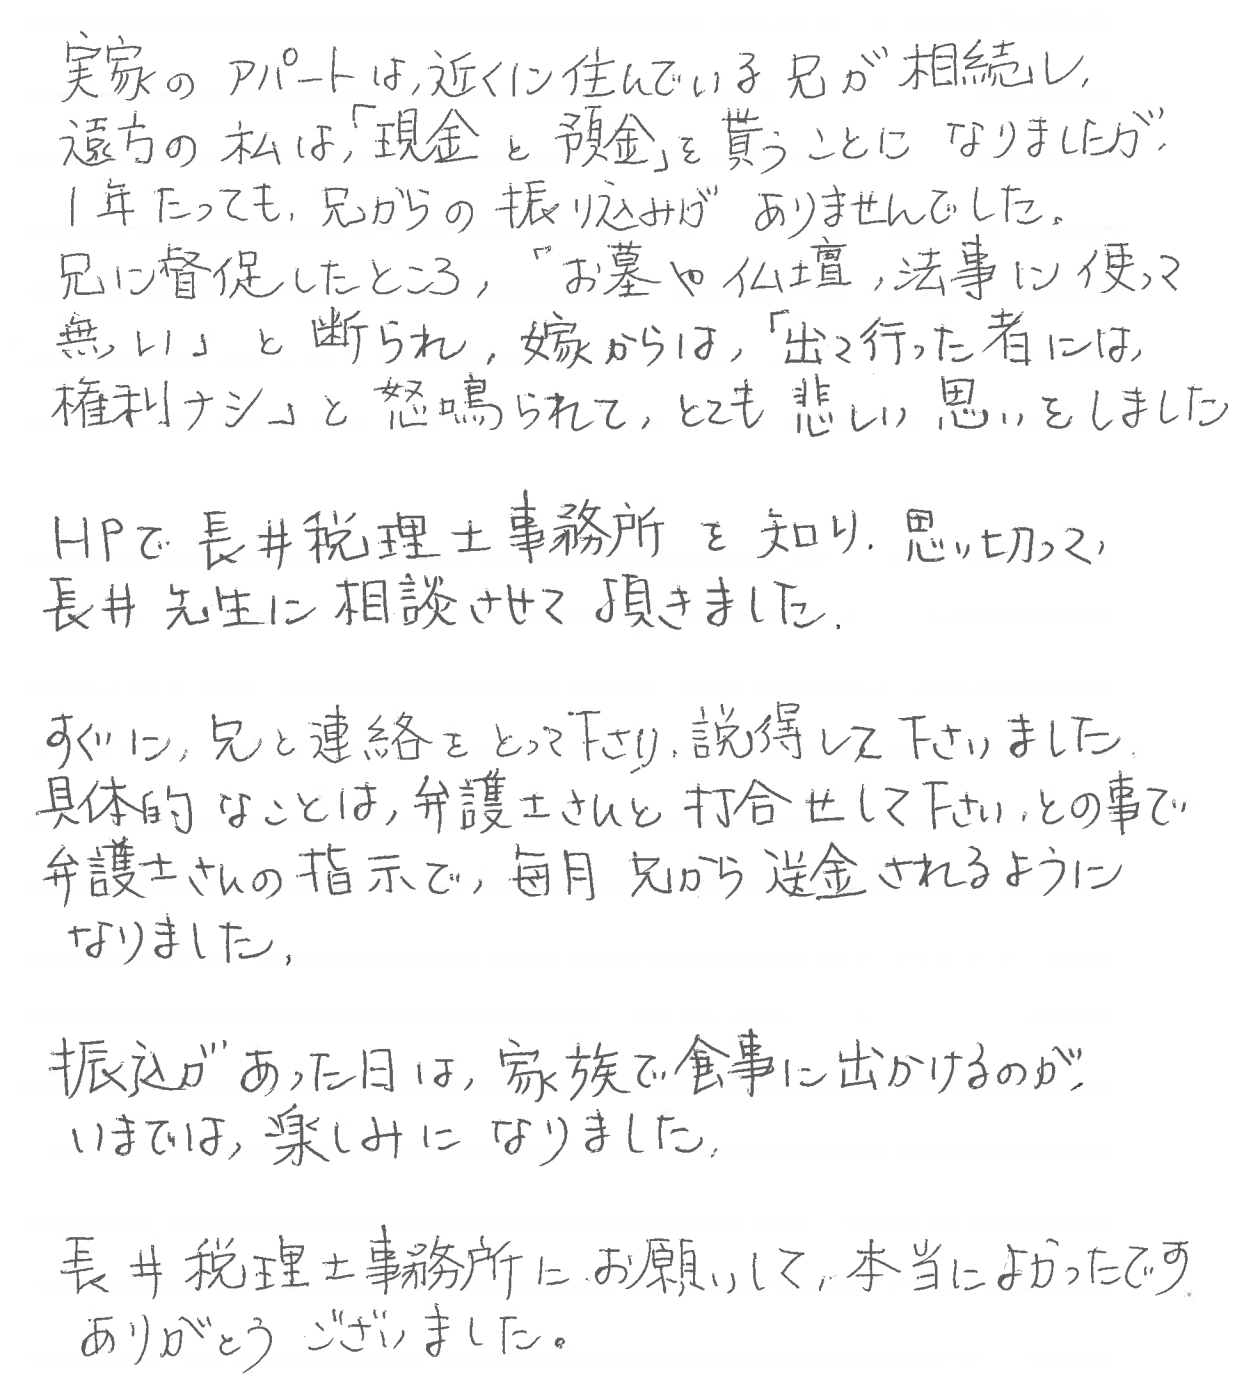 実家のアパートは,近くに住んでいる兄が相続し,
遠方の私は,「現金と預金」を貰うことになりましたが,
1年たっても,兄からの振り込みがありませんでした。
兄に督促したところ,「お墓や仏壇,法事に使って
無い」と断られ,嫁からは,「出て行った者には,
権利ナシ」と怒鳴られて,とても悲しい思いをしました
HPで長井税理士事務所を知り,思い切って,
長井先生に相談させて頂きました.
すぐに,兄と連絡をとって下さり,説得して下さいました.
具体的なことは,弁護士さんと打合せして下さい,との事で
弁護士さんの指示で,毎月兄から送金されるように
なりました,
振込があった日は,家族で食事に出かけるのが,
いまでは,楽しみになりました.
長井税理士事務所にお願いして,本当によかったです.
ありがとうございました。